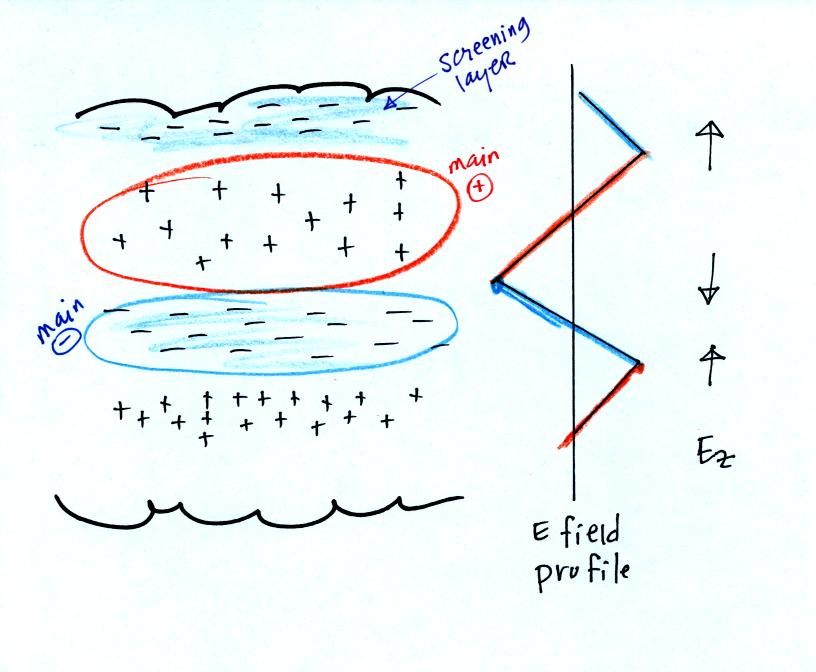 screening
layer
main
+
main
-
Ez
E field
profile